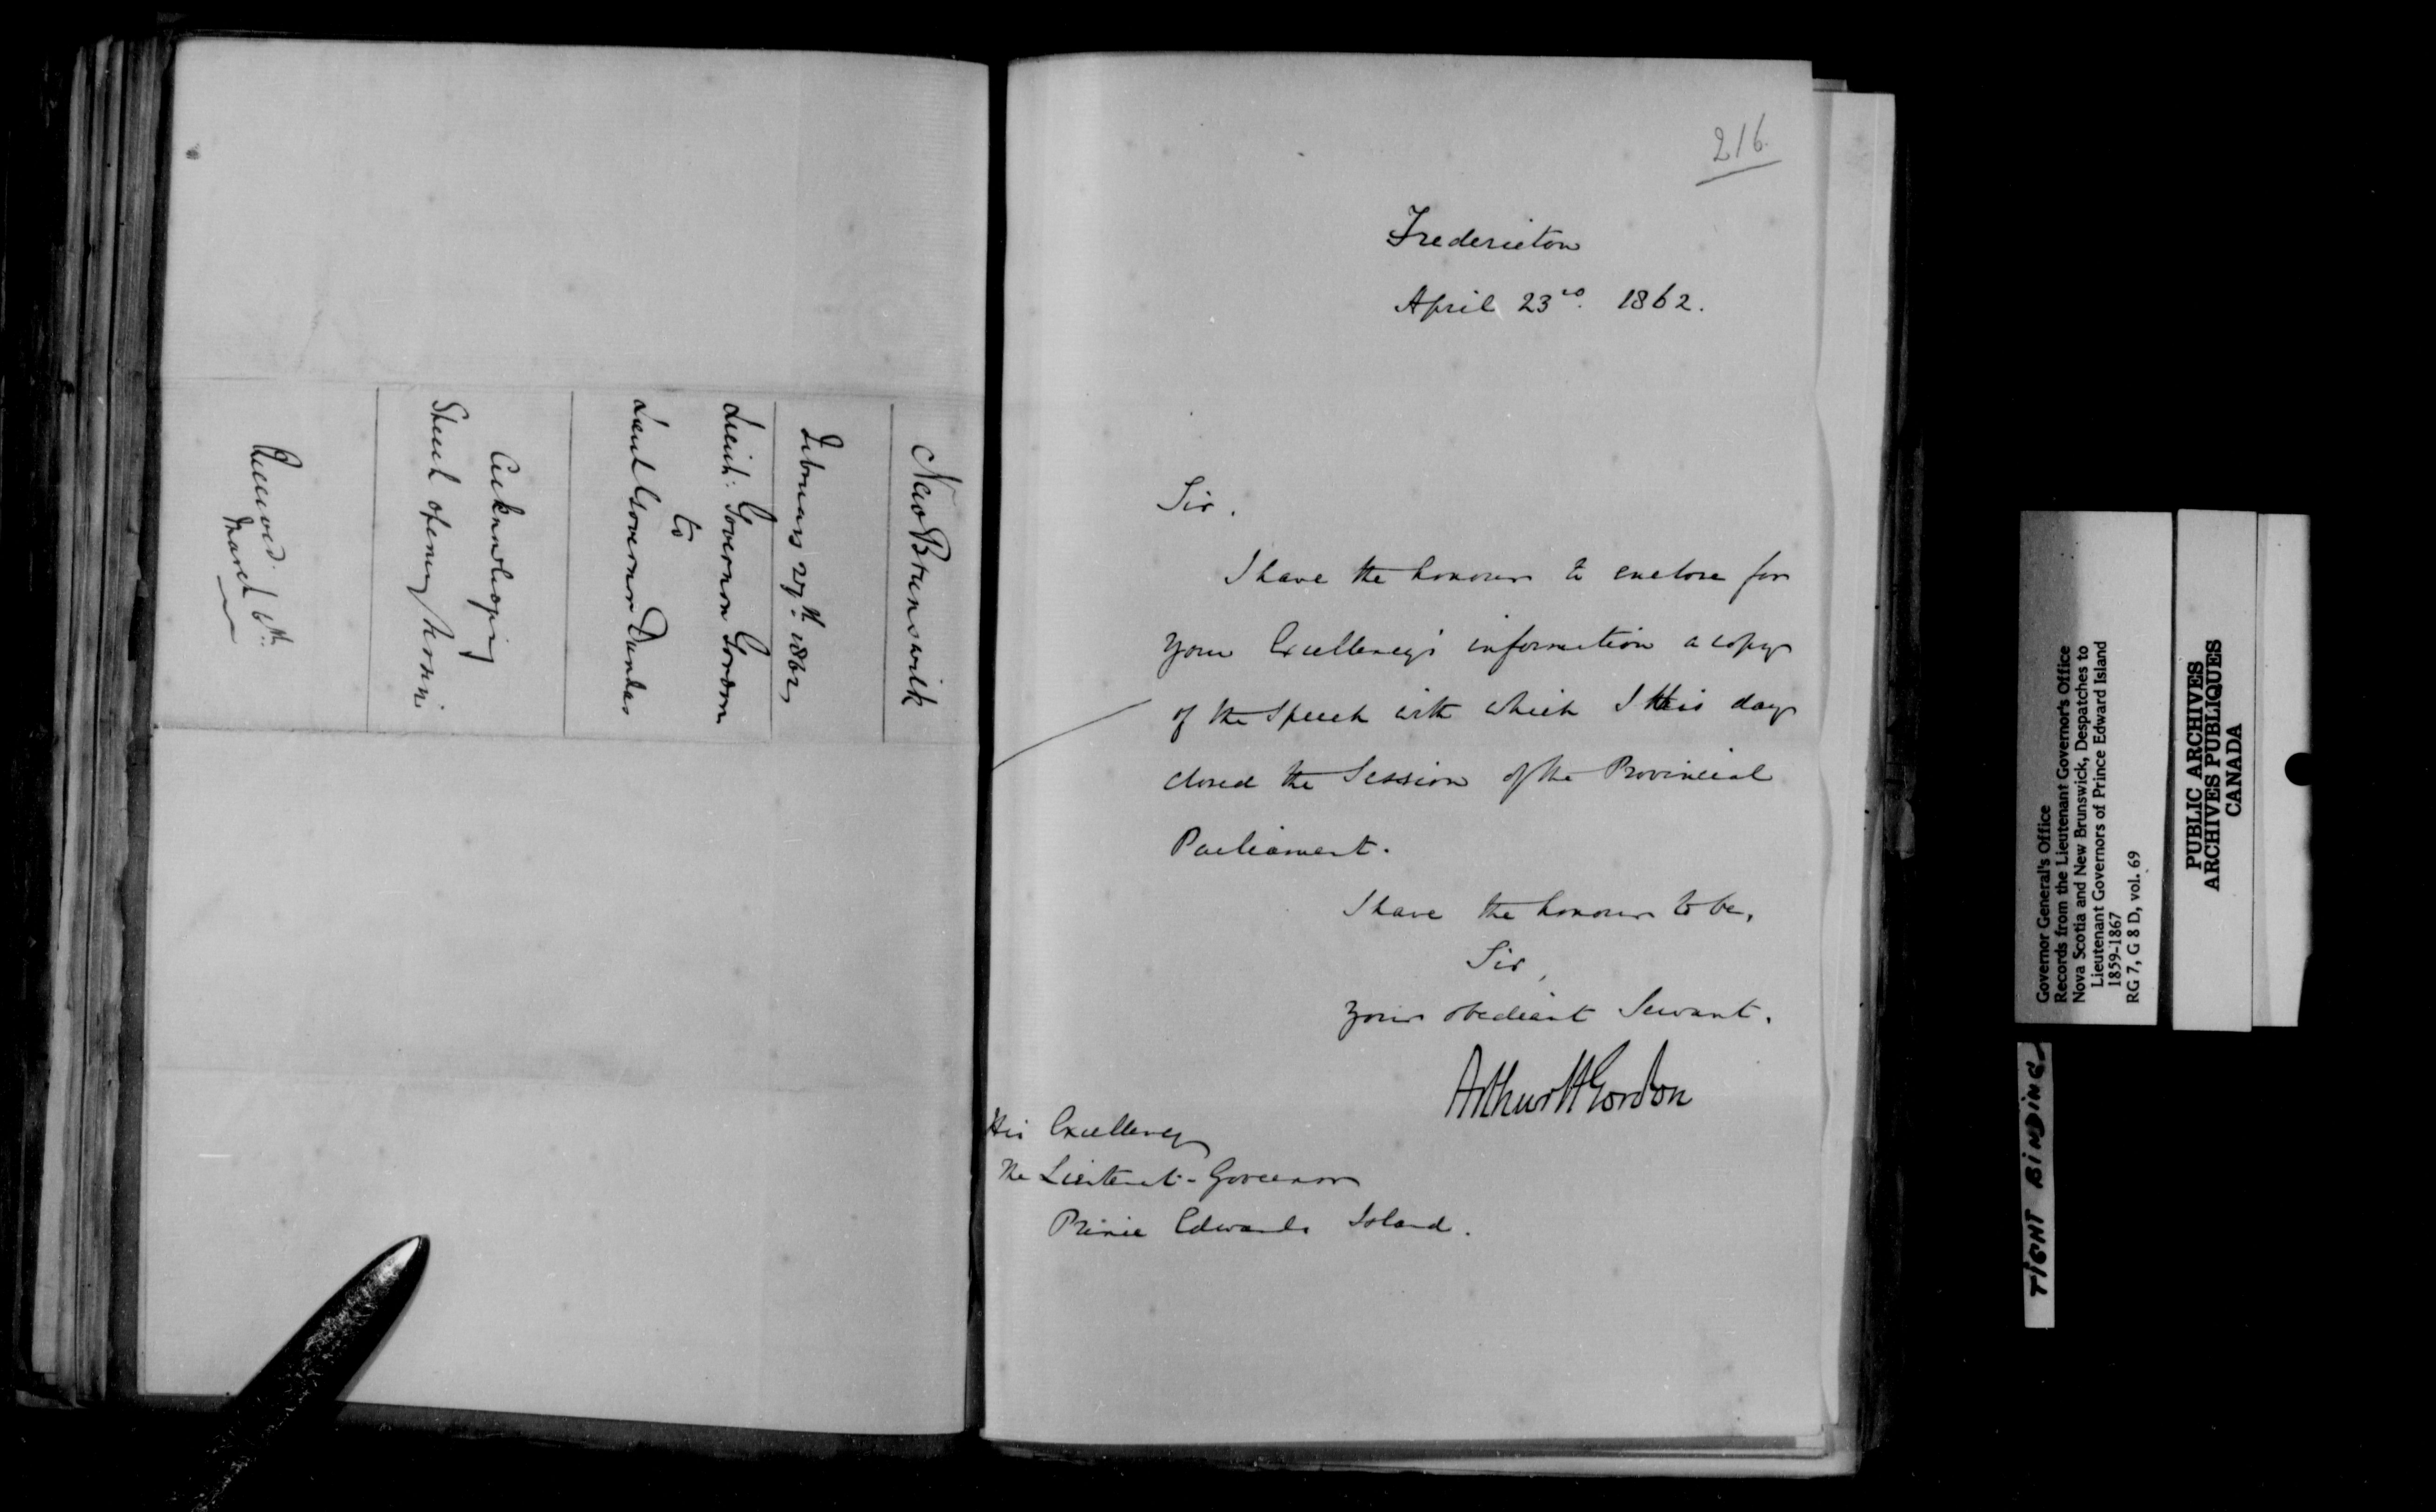 New Brunswick
February 27th. 1862
Lieut: Governor Gordon
to
Lieut Governor Dundas
Acknowledging
Speech opening
Received
March 6th.
216.
Fredericton
April 23rd. 1862.
Sir.
I have the honour to enclose for
your Excellency's information a copy
of the Speech with which I this day
closed the Session of the Provincial
Parliament.
I have the honour to be,
Sir,
your obedient Servant.
Arthur H Gordon
His Excellency
The Lieutenant-Governor
Prince Edwards Island.
Governor General's Office
Records from the Lieutenant Governor's Office
Nova Scotia and New Brunswick, Despatches to
Lieutenant Governors of Prince Edward Island
1859-1867
RG 7, G 8 D, vol. 69
PUBLIC ARCHIVES
ARCHIVES PUBLIQUES
CANADA
TIGHT BINDING